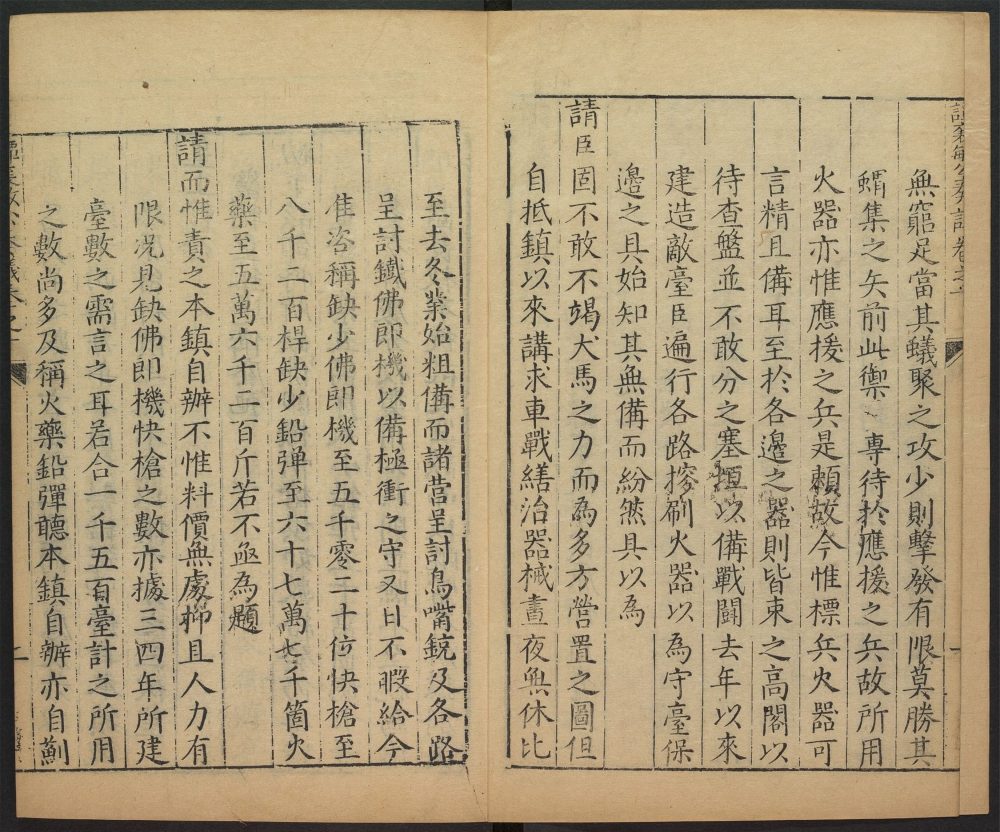 無窮足當其蟻聚之攻少則擊發有限莫勝其
蝟集之矢前此禦專待於應援之兵故所用
火器亦惟應援之兵是賴故今惟標兵火器可
言精且備耳至於各邊之器則皆束之高閣以
待查盤並不敢分之塞垣以備戰鬪去年以來
建造敵臺臣遍行各路搜刷火器以為守臺保
邊之具始知其無備而紛然具以為
請臣固不敢不竭犬馬之力而為多方營置之圖但
自抵鎮以來講求車戰繕治器械晝夜無休比
至去冬業始粗備而諸營呈討鳥嘴銃及各路
呈討鐵佛郎機以備極衝之守又日不暇給今
准咨稱缺少佛郎機至五千零二十位快槍至
八千二百桿缺少鉛弹至六十七萬七千箇火
藥至五萬六千二百斤若不亟為題
請而惟責之本鎮自辦不惟料價無處抑且人力有
限况見缺佛郎機快槍之數亦據三四年所建
臺數之需言之耳若合一千五百臺計之所用
之數尚多及稱火藥鉛彈聽本鎮自辦亦自薊